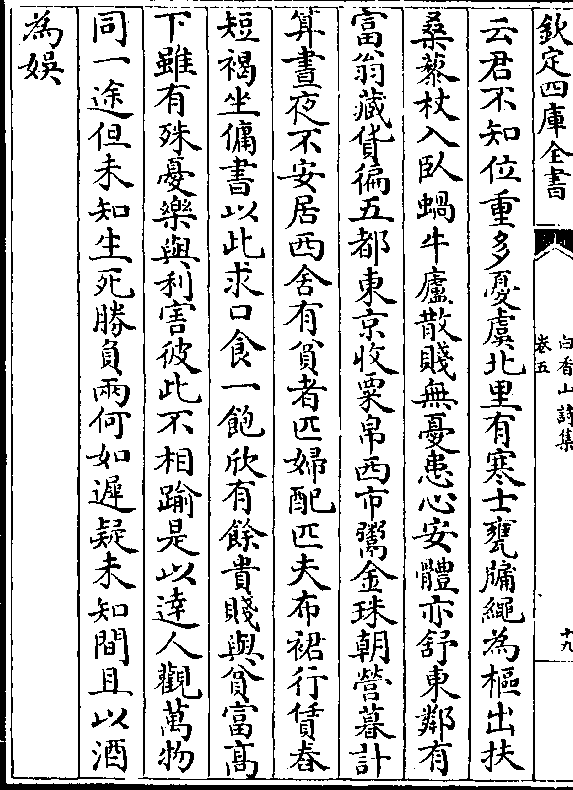 欽定四庫全書
白香山詩集
卷五
十九
云君不知位重多憂虞北里有寒士甕牖繩為樞出扶
桑藜杖入臥蝸牛廬散賤無憂患心安體亦舒東鄰有
富翁藏貨徧五都東京收粟帛西市鬻金珠朝營暮計
算晝夜不安居西舍有貧者匹婦配匹夫布裙行賃舂
短褐坐傭書以此求口食一飽欣有餘貴賤與貧富高
下雖有殊憂樂與利害彼此不相踰是以逹人觀萬物
同一途但未知生死勝負兩何如遲疑未知間且以酒
為娛